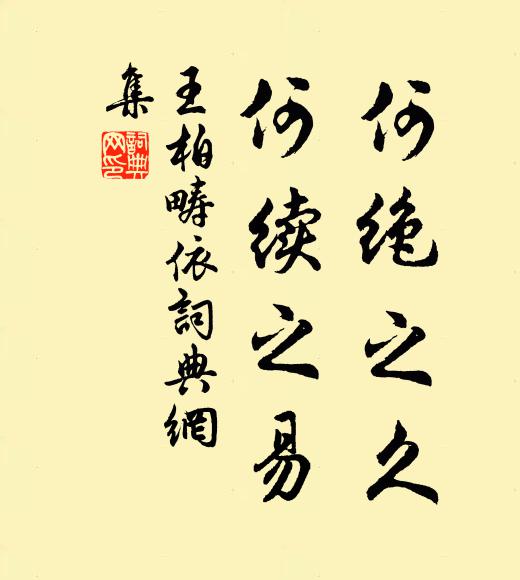 何绝之久
何续之易
王柏畴依詞典網
集
詞典
网印